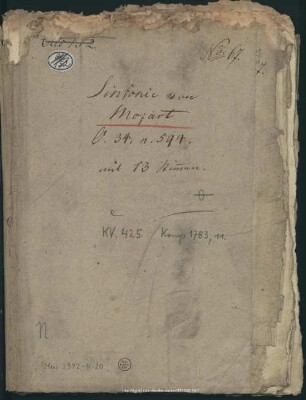 No. 67.
7.
Sinfonie von
Mozart
O. 34. n. 594.
mit 13 Stimmen.
KV. 425 Komp 1783, 11.
N
Mus 3972-N-20